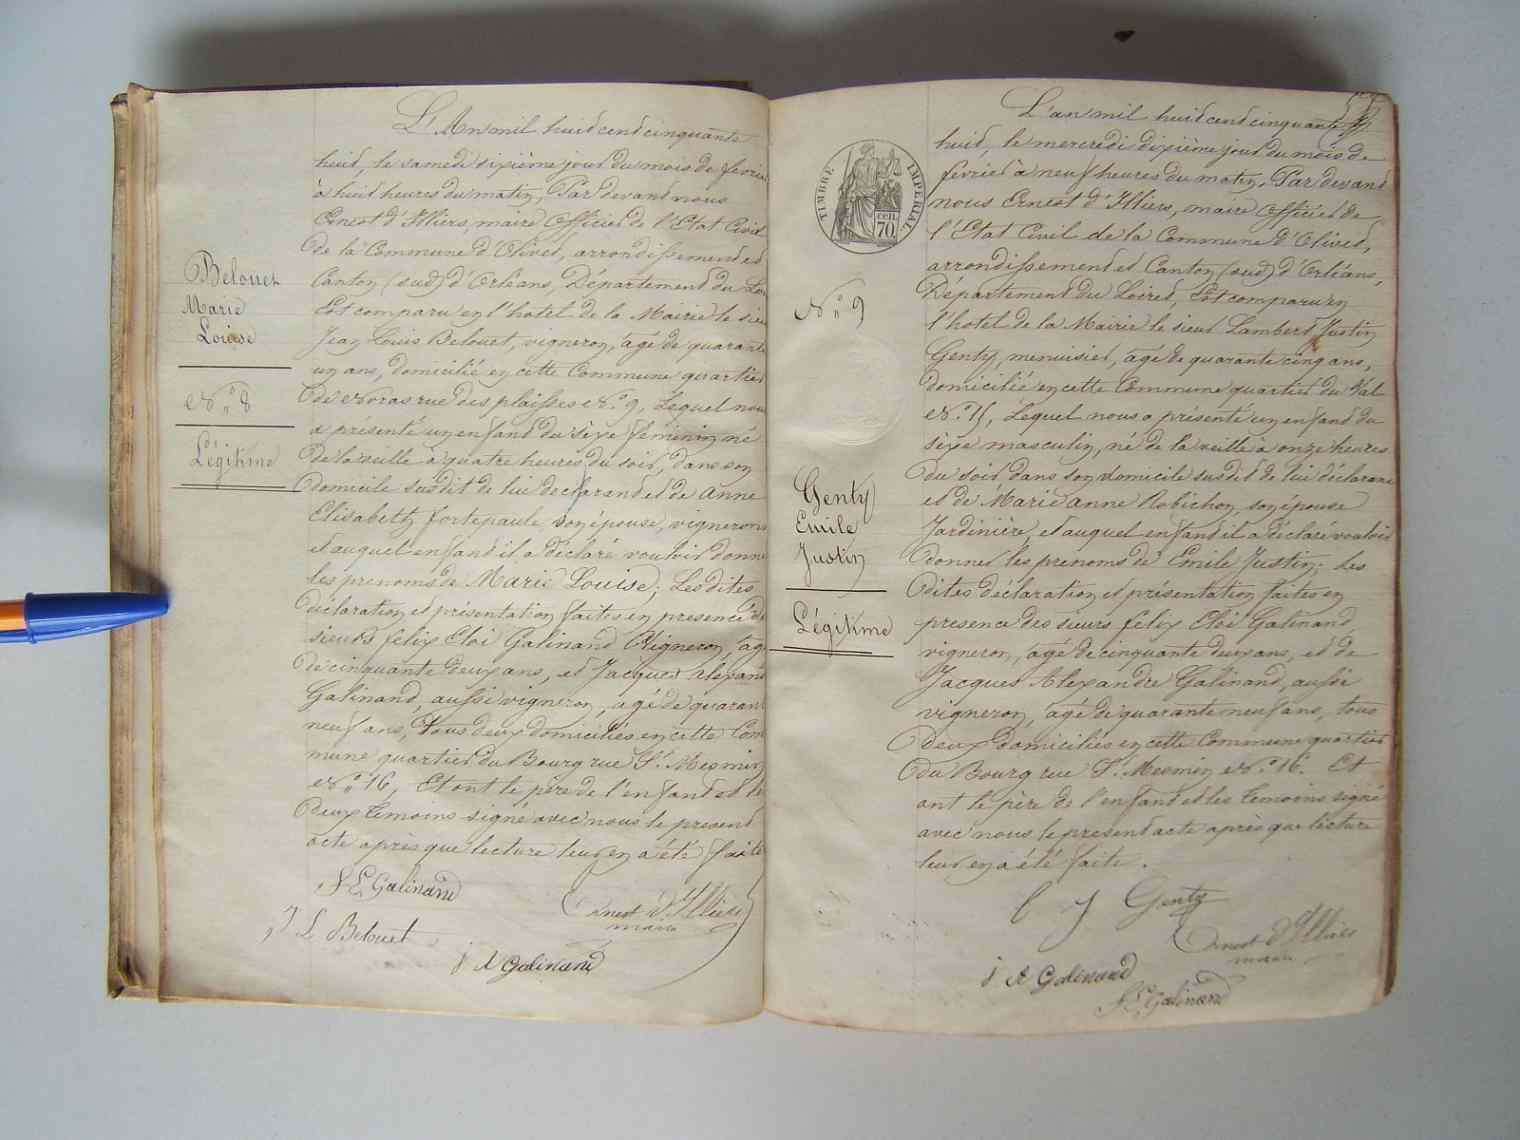 L'An mil huit cent cinquante
huit, le samedi sixième jour du mois de fevrier
à huit heures du matin, Par devant nous
Ernest d'Illiers, maire Officier de l'Etat Civil
de la Commune d'Olivet, arrondissement et
Canton (sud) d'Orléans, Département du Loi
Est comparu en l'hotel de la Mairie le sieur
Jean Louis Belouet, vigneron, âgé de quarante
un ans, domicilié en cette Commune quartier
de Noras rue des plaisses N.° 9, Lequel nous
a présenté un enfant du sèxe féminin né
de la veille à quatre heures du soir, dans son
domicile susdit de lui déclarant et de Anne
Elisabeth fortepaule son épouse, vigneronne
et auquel enfant il a déclaré vouloir donner
les prenoms de Marie Louise; Les dites
déclaration et présentation faites en presence de
sieurs félix Eloi Galinand Vigneron, âgé
de cinquante deux ans, et Jacques alexand
Galinand, aussi vigneron, agé de quarant
neuf ans, Tous deux domiciliés en cette Com
mune quartier du Bourg rue St. Mesmin
N.° 16, Et ont le père de l'enfant et les
deux témoins signé avec nous le present
acte après que lecture leur en a été faite
f E Galinand
Ernest d'Illiers
maire
J L Belouet
j A Galinand
Belouet
Marie
Louise
N.° 8
Légitime
L'an mil huit cent cinquante
huit, le mercredi dixième jour du mois de
fevrier à neuf heures du matin, Par devant
nous Ernest d'Illiers, maire Officier de
l'Etat Civil de la Commune d'Olivet,
arrondissement et Canton (sud) d'Orléans,
Département du Loiret, Est comparu en
l'hotel de la Mairie le sieur Lambert Justin
Genty, menuisier, âgé de quarante cinq ans,
domicilié en cette Commune quartier du Val
N.° 15, Lequel nous a présenté un enfant du
sèxe masculin, né de la veille à onze heures
du soir dans son domicile susdit de lui déclarant
et de Marie Anne Robichon, son épouse
Jardinière, et auquel enfant il a déclaré vouloir
donner les prenoms de Emile Justin; Les
dites déclaration et présentation faites en
presence des sieurs félix Eloi Galinand,
vigneron, âgé de cinquante deux ans, et de
Jacques Alexandre Galinand, aussi
vigneron, âgé de quarante neuf ans, tous
deux domiciliés en cette Commune quartier
du Bourg rue St. Mesmin N.° 16. Et
ont le père de l'enfant et les témoins signé
avec nous le present acte après que lecture
leur en a été faite.
l J Genty
Ernest d'Illiers
maire
j A Galinand
f E Galinand
TIMBRE IMPERIAL
cen
70
N.° 9
Genty
Emile
Justin
Légitime